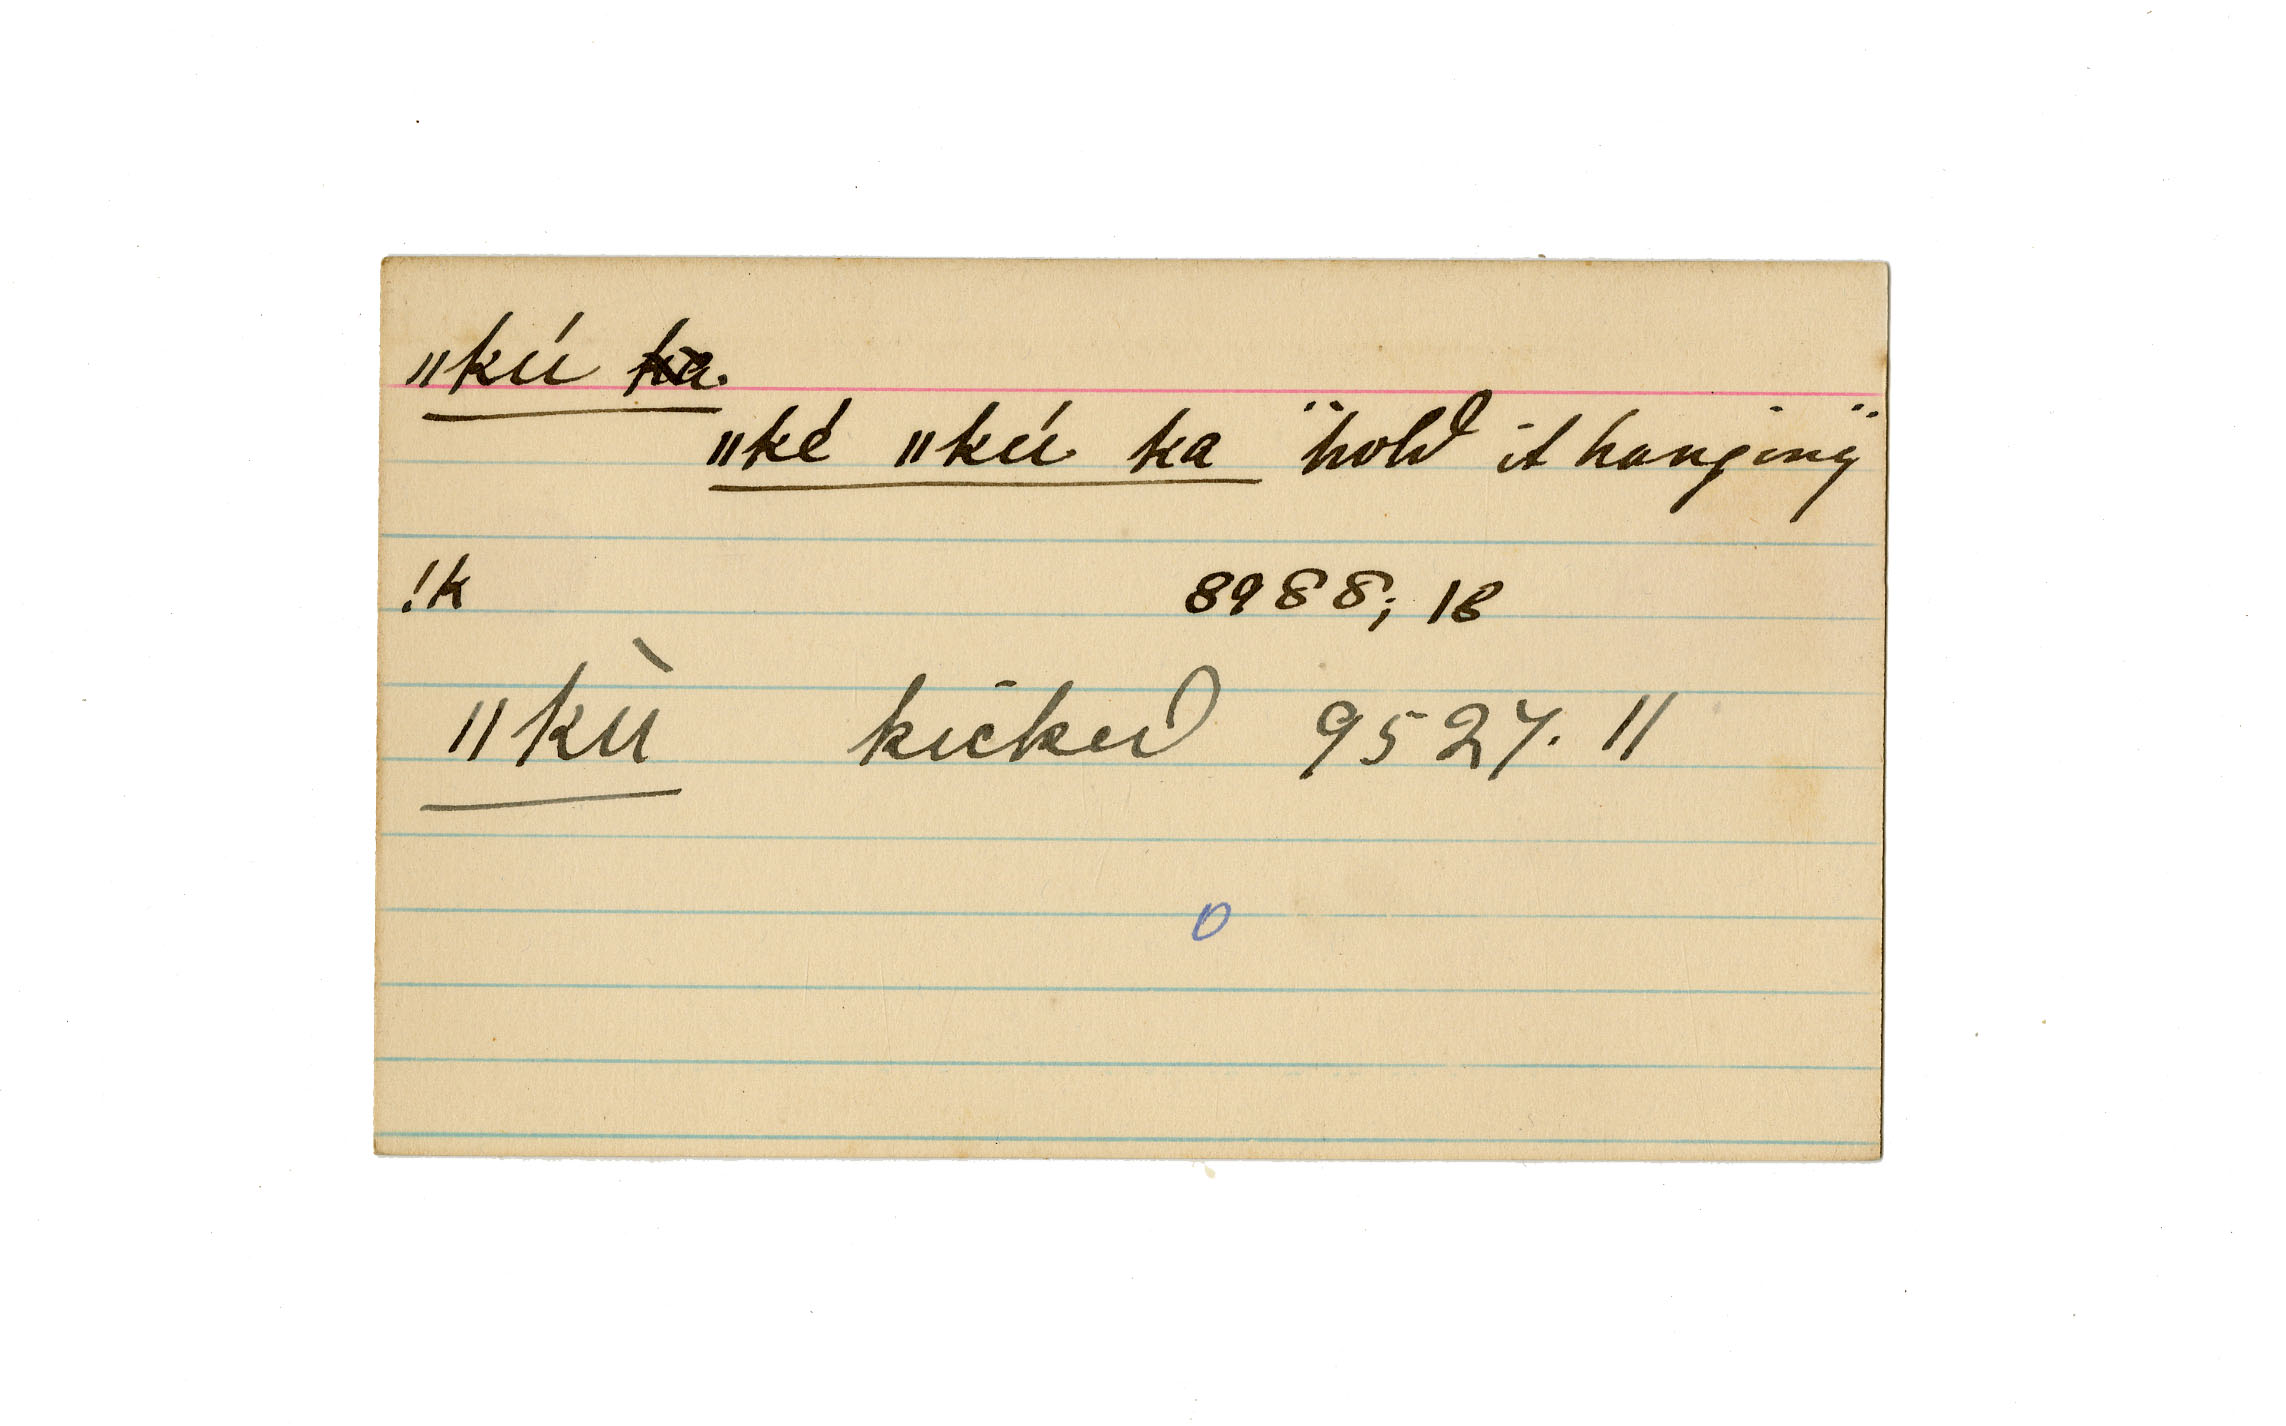 ǁkú ka.
ǁké ǁkú ka "hold it hanging"
!k 8988; 18
ǁkù kicked 9527. 11
0